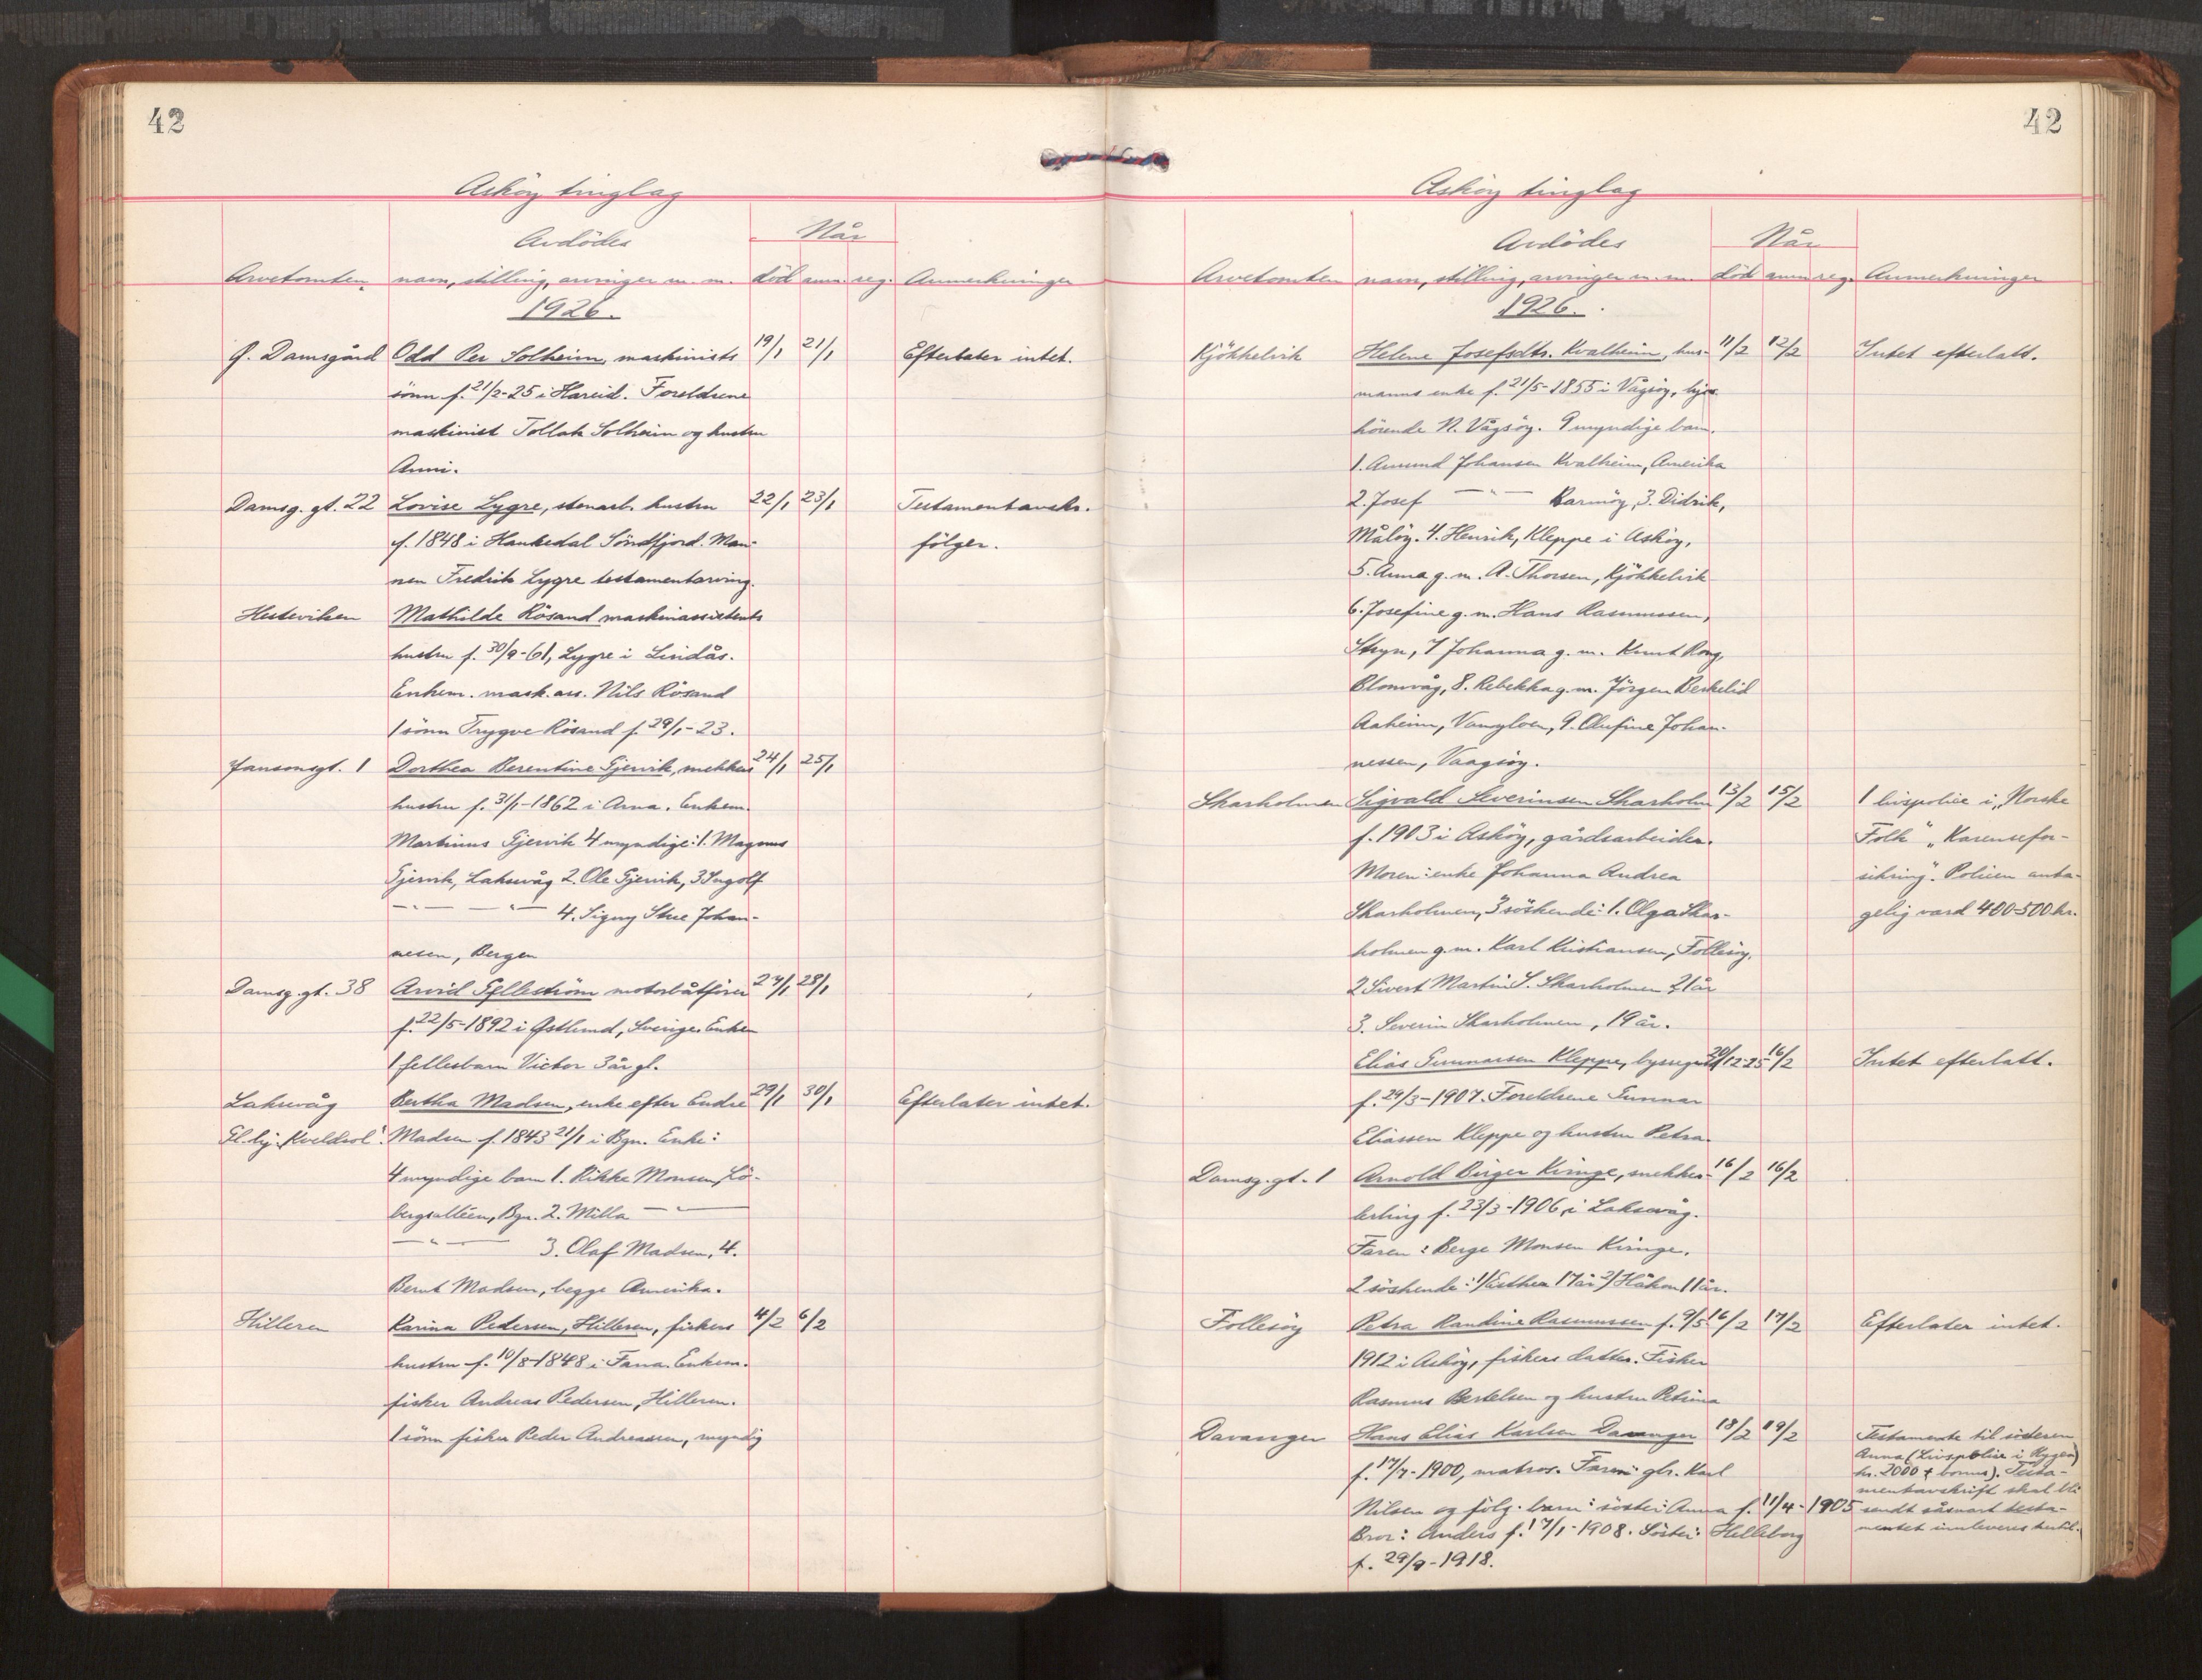 42
Askøy tinglag
Avdödes
Når
Arvetomten
navn, stilling, arvinger m.m.
död
anm.
reg.
Anmerkninger
1926.
G. Damsgård Odd Per Solheim, maskinists 19/1 21/1 Efterlater intet.
sönn f. 21/2-25 i Hareid. Foreldrene
maskinist Tollak Solheim og hustru
Anni.
Damsg. gt. 22 Lovise Lygre, stenarb. hustru 22/1 23/1 Testamentavskr.
f. 1848 i Haukedal Söndfjord. Man- følger.
nen Fredrik Lygre testamentarving.
Hesteviken Mathilde Rösand maskinassistents
hustru f. 30/9-61, Lygre i Lindås.
Enkem. mask. ass. Nils Rösand
1 sönn Trygve Rösand f. 29/1-23.
Jansonsgt. 1 Dorthea Berentine Gjervik, snekkers 24/1 25/1
hustru f. 31/1-1862 i Arna. Enkem.
Martinus Gjervik 4 myndige: 1. Magnus
Gjervik, Laksevåg 2. Ole Gjervik, 3 Ingolf
—"— —"— 4. Signy Stue Johan-
nesen, Bergen
Damsg. gt. 38 Arvid Gylleström motorbåtfører 27/1 28/1
f. 22/5-1892 i Østlund, Sverige. Enken
1 fellesbarn Victor 3 år gl.
Laksevåg Bertha Madsen, enke efter Endre 29/1 30/1 Efterlater intet.
Gl. hj. "Kveldsol". Madsen f. 1843 21/1 i Bgn. Enke:
4 myndige barn 1. Rikke Monsen, Lö-
bergsalléen, Bgn. 2. Milla —"—
—"— 3. Olaf Madsen, 4.
Bernt Madsen, begge Amerika.
Hilleren Karina Pedersen, Hilleren, fiskers 4/2 6/2
hustru f. 10/8-1848 i Fana. Enkem.
fisker Andreas Pedersen, Hilleren.
1 sönn fisker Peder Andreassen, myndig
42
Askøy tinglag
Avdödes
Når
Arvetomten
navn, stilling, arvinger m.m.
död
anm
reg.
Anmerkninger
1926.
Kjökkelvik Helene Josefsdtr. Kvalheim, hus- 11/2 12/2 Intet efterlatt.
manns enke f. 21/5-1855 i Vågsöy, hjem-
hörende N. Vågsöy. 9 myndige barn.
1. Amund Johansen Kvalheim, Amerika
2. Josef —"— Karmöy, 3. Didrik,
Målöy. 4. Henrik, Kleppe i Asköy,
5. Anna g. m. A. Thorsen, Kjökkelvik
6. Josefine g. m. Hans Rasmussen,
Stryn, 7 Johanna g. m. Knut Rong,
Blomvåg, 8. Rebekka g. m. Jörgen Berkelid
Aaheim, Vanylven, 9. Olufine Johan-
nessen, Vaagsöy.
Skarholmen Sigvald Severinsen Skarholm 13/2 15/2 1 livspolise i "Norske
f. 1903 i Asköy, gårdsarbeider. Folk" "Karensefor-
Moren: enke Johanna Andrea sikring". Polisen anta-
Skarholmen, 3 söskende: 1. Olga Skar- gelig verd 400-500 kr.
holmen g. m. Karl Kristiansen, Follesöy,
2 Sivert Martin S. Skarholmen 21 år
3. Severin Skarholmen, 19 år.
Elias Gunnarsen Kleppe, byssegutt 20/12-25 16/2 Intet efterlatt.
f. 29/3-1907. Foreldrene Gunnar
Eliassen Kleppe og hustru Petra.
Damsg. gt. 1 Arnold Birger Kvinge, snekker- 16/2 16/2
lærling f. 23/3-1906 i Laksevåg.
Faren: Berge Monsen Kvinge.
2 söskende: 1/ Esther 17 år 2/ Håkon 11 år.
Follesöy Petra Randine Rasmussen f. 9/5 16/2 17/2 Efterlater intet.
1912 i Asköy, fiskers datter. Fisker
Rasmus Bertelsen og hustru Petrina
Davanger Hans Elias Karlsen Davanger 18/2 19/2 Testamente til söteren
Anna (Livspolise i Hygea)
f. 17/7-1900, matros. Faren: gbr. Karl kr. 2000 + bonus). Testa-
mentavskrift skal bli
Nilsen og fölg. barn: söster Anna f. 11/4-1905 sendt såsnart testa-
Bror: Anders f. 17/1-1908. Söster Helleborg mentet innleveres hertil.
f. 29/9-1918.